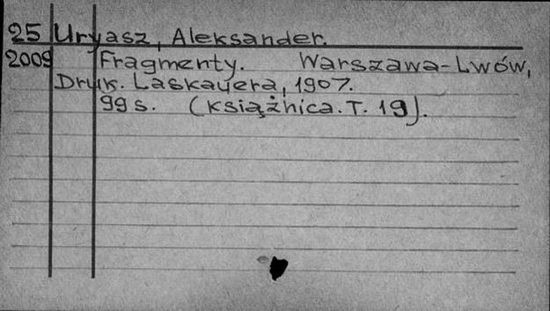 25 Uryasz, Aleksander.
2009 Fragmenty. Warszawa-Lwów,
Druk. Laskauera, 1907.
99 s. (Książnica. T. 19).